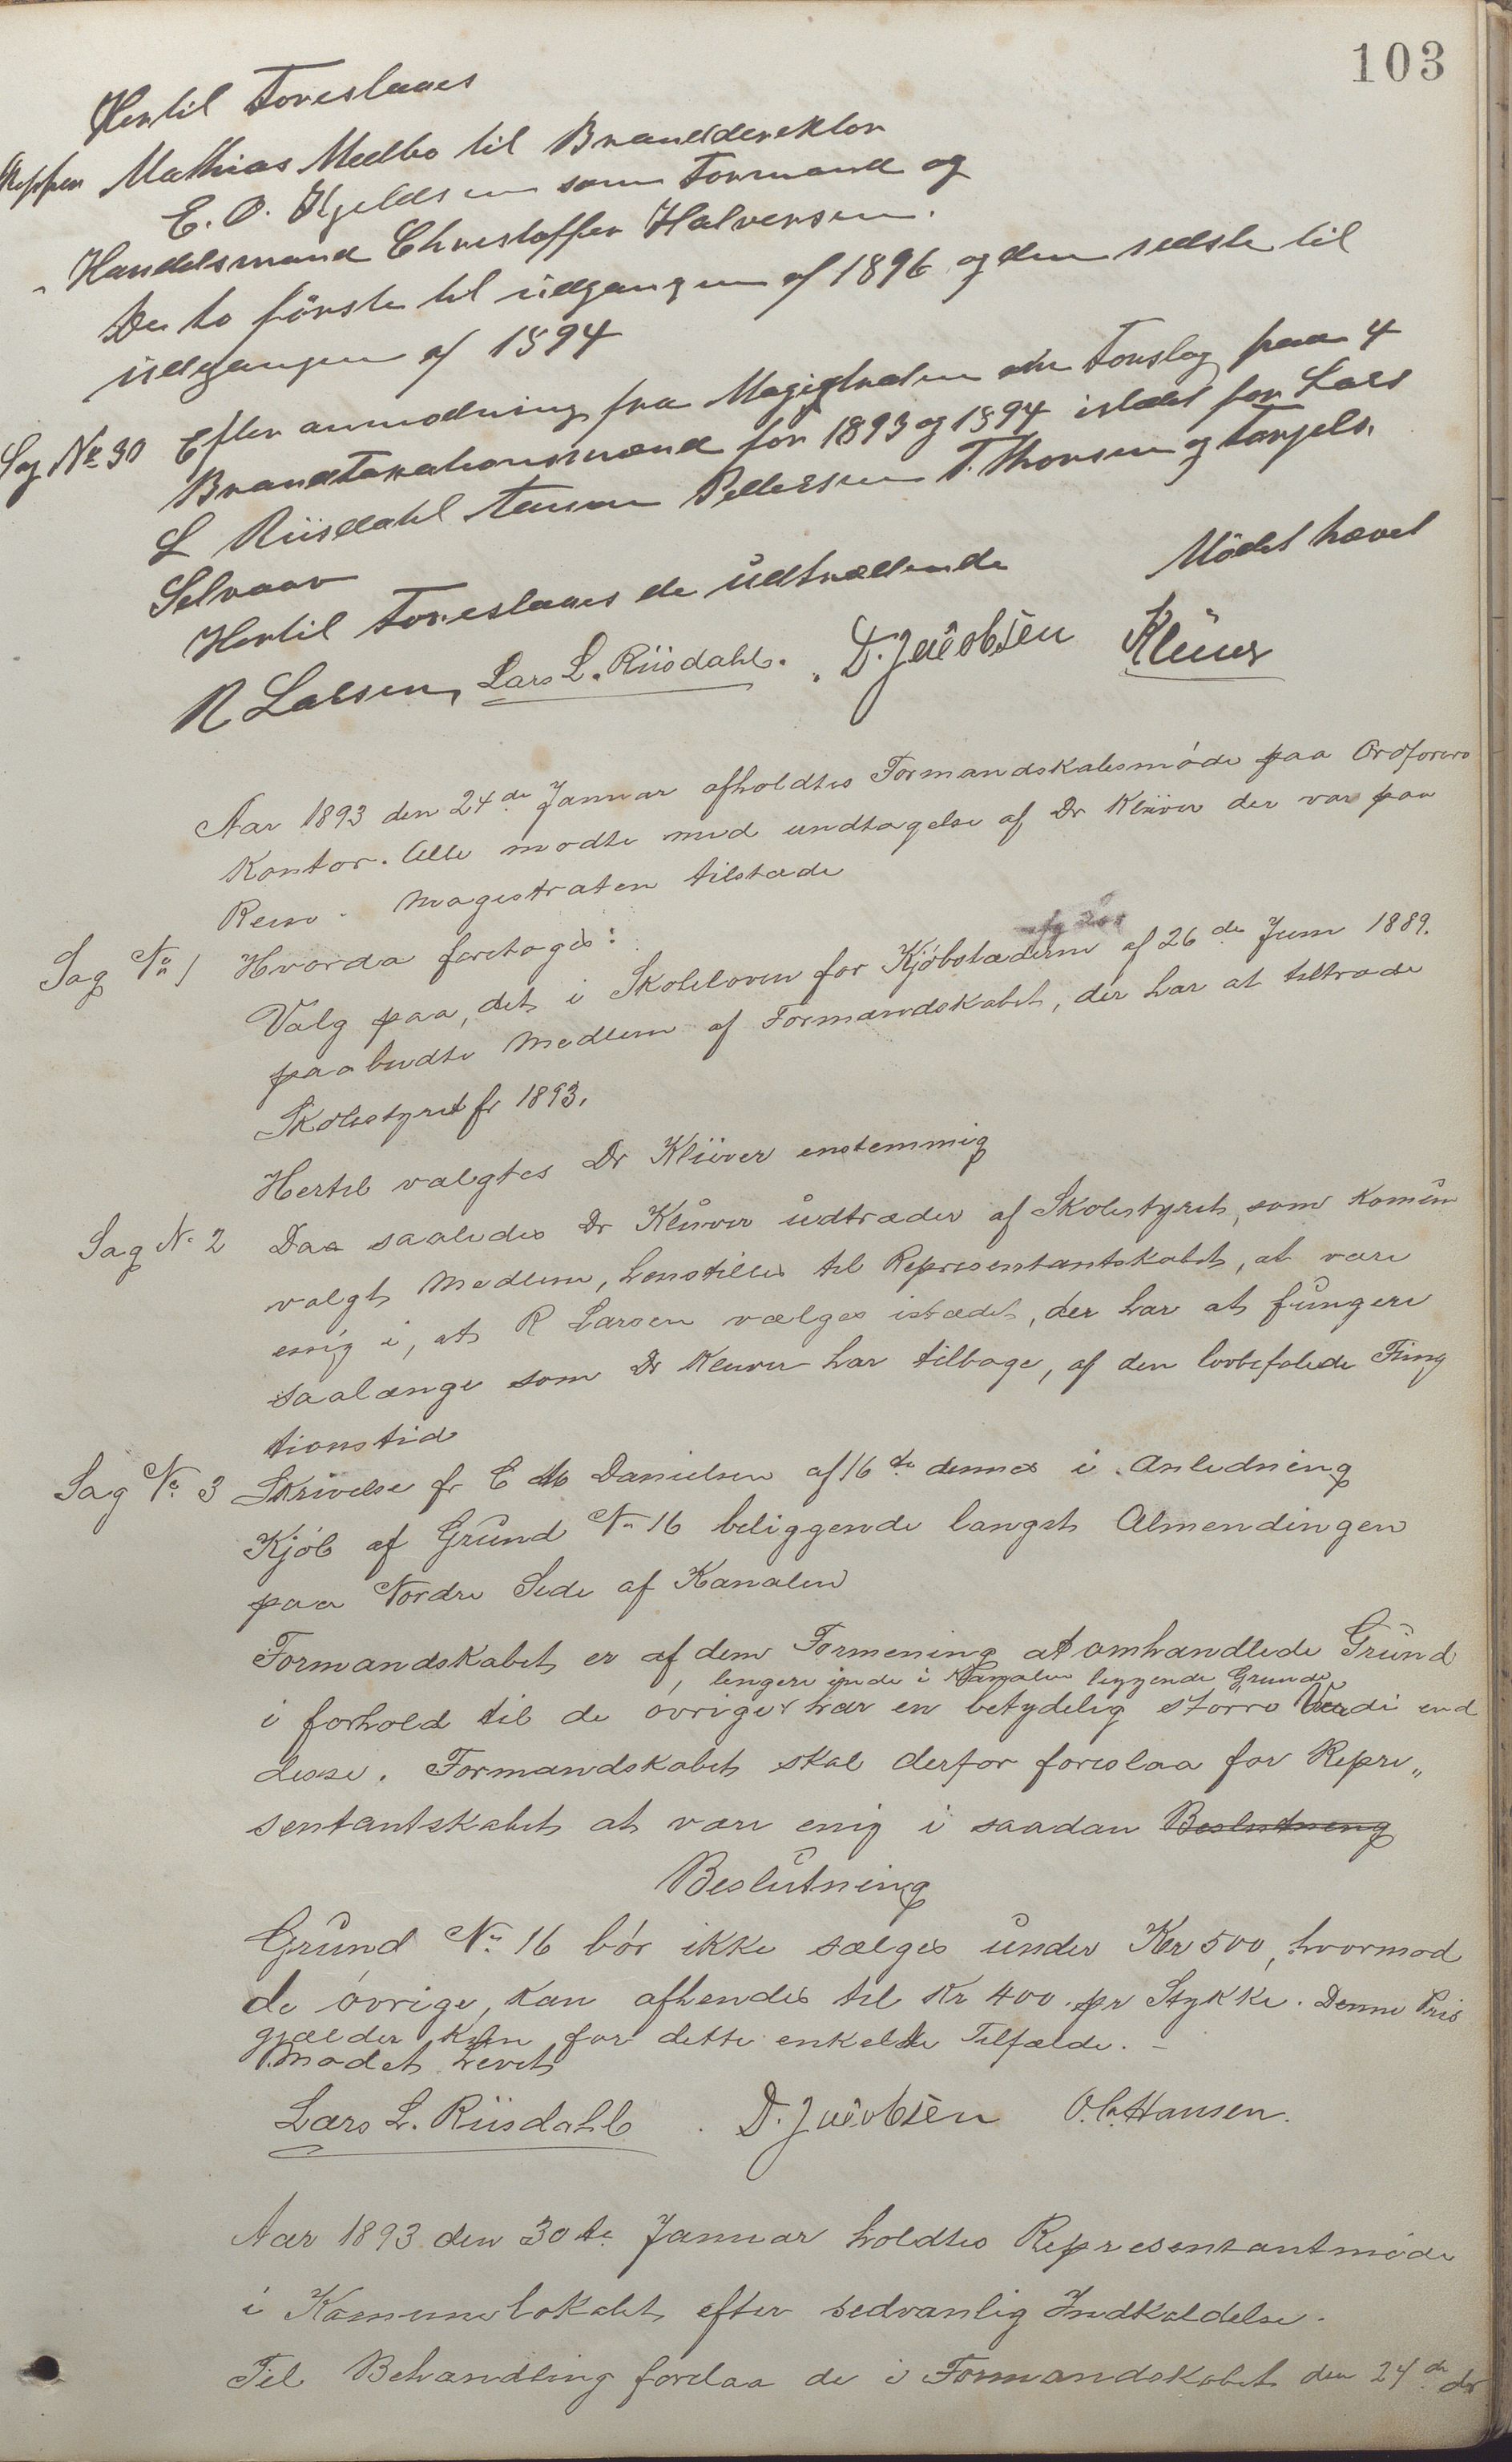 103
Hertil Foreslaaes
Skipper Mathias Medbo til Branddirektør
E. O. Kjeldsen som Formand og
Handelsmand Christoffer Halversen.
De to første til udgangen af 1896 og den sidste til
udgangen af 1894
Sag No 30 Efter anmodning fra Magistraten om Forslag paa 4
Brandtaxationsmænd for 1893 og 1894 istedet for Lars
L Riisdahl Aanon Pedersen T. Thorsen og Torjuls.
Selvaav
Hertil Foreslaaes de udtrædende
Mødet hævet
R Larsen, Lars L. Riisdahl. D. Jacobsen Klüver
Aar 1893 den 24de Januar afholdtes Formandskabsmøde paa Ordførers
Kontor. Alle mødte med undtagelse af Dr Klüver der var paa
Reise. Magistraten tilstede
Hvorda foretoges:
Sag No 1
Valg paa, det i Skoleloven for Kjøbstæderne af 26de Juni 1889.
paabudte Medlem af Formandskabet, der har at tiltræde
Skolestyret fr 1893.
Hertil valgtes Dr Klüver enstemmig
Sag N. 2 Daa saaledes Dr Klüver udtræder af Skolestyret, som Komün
valgt Medlem, henstilles til Representantskabet, at være
enig i, at R Larsen vælges istædet, der har at fungere
saalænge som Dr Kluver har tilbage, af den lovbefalede Füng
tionstid
Sag No 3 Skrivelse fr E Danielsen af 16de dennes i Anledning
Kjøb af Grund No 16 beliggende langst Almendingen
paa Nordre Side af Kanalen
Formandskabet er af den Formening at omhandlede Grund
, lengere inde i Kanalen liggende Grunde
i forhold til de øvrige har en betydelig større Verdi end
disse. Formandskabet skal derfor foreslaa for Repre„
sentantskabet at være enig i saadan Beslutning
Beslutning
Grund No 16 bør ikke sælges under Kr 500, hvormod
de øvrige, kan afhendes til Kr 400 pr Stykke. Denne Pris
gjælder kun for dette enkelte Tilfælde. –
Mødet hevet
Lars L. Riisdahl. D. Jacobsen O. C. Hansen.
Aar 1893 den 30te Januar holdtes Representantmøde
i Kommunelokalet efter sedvanlig Indkaldelse.
Til Behandling forelaa de i Formandskabet den 24de ds